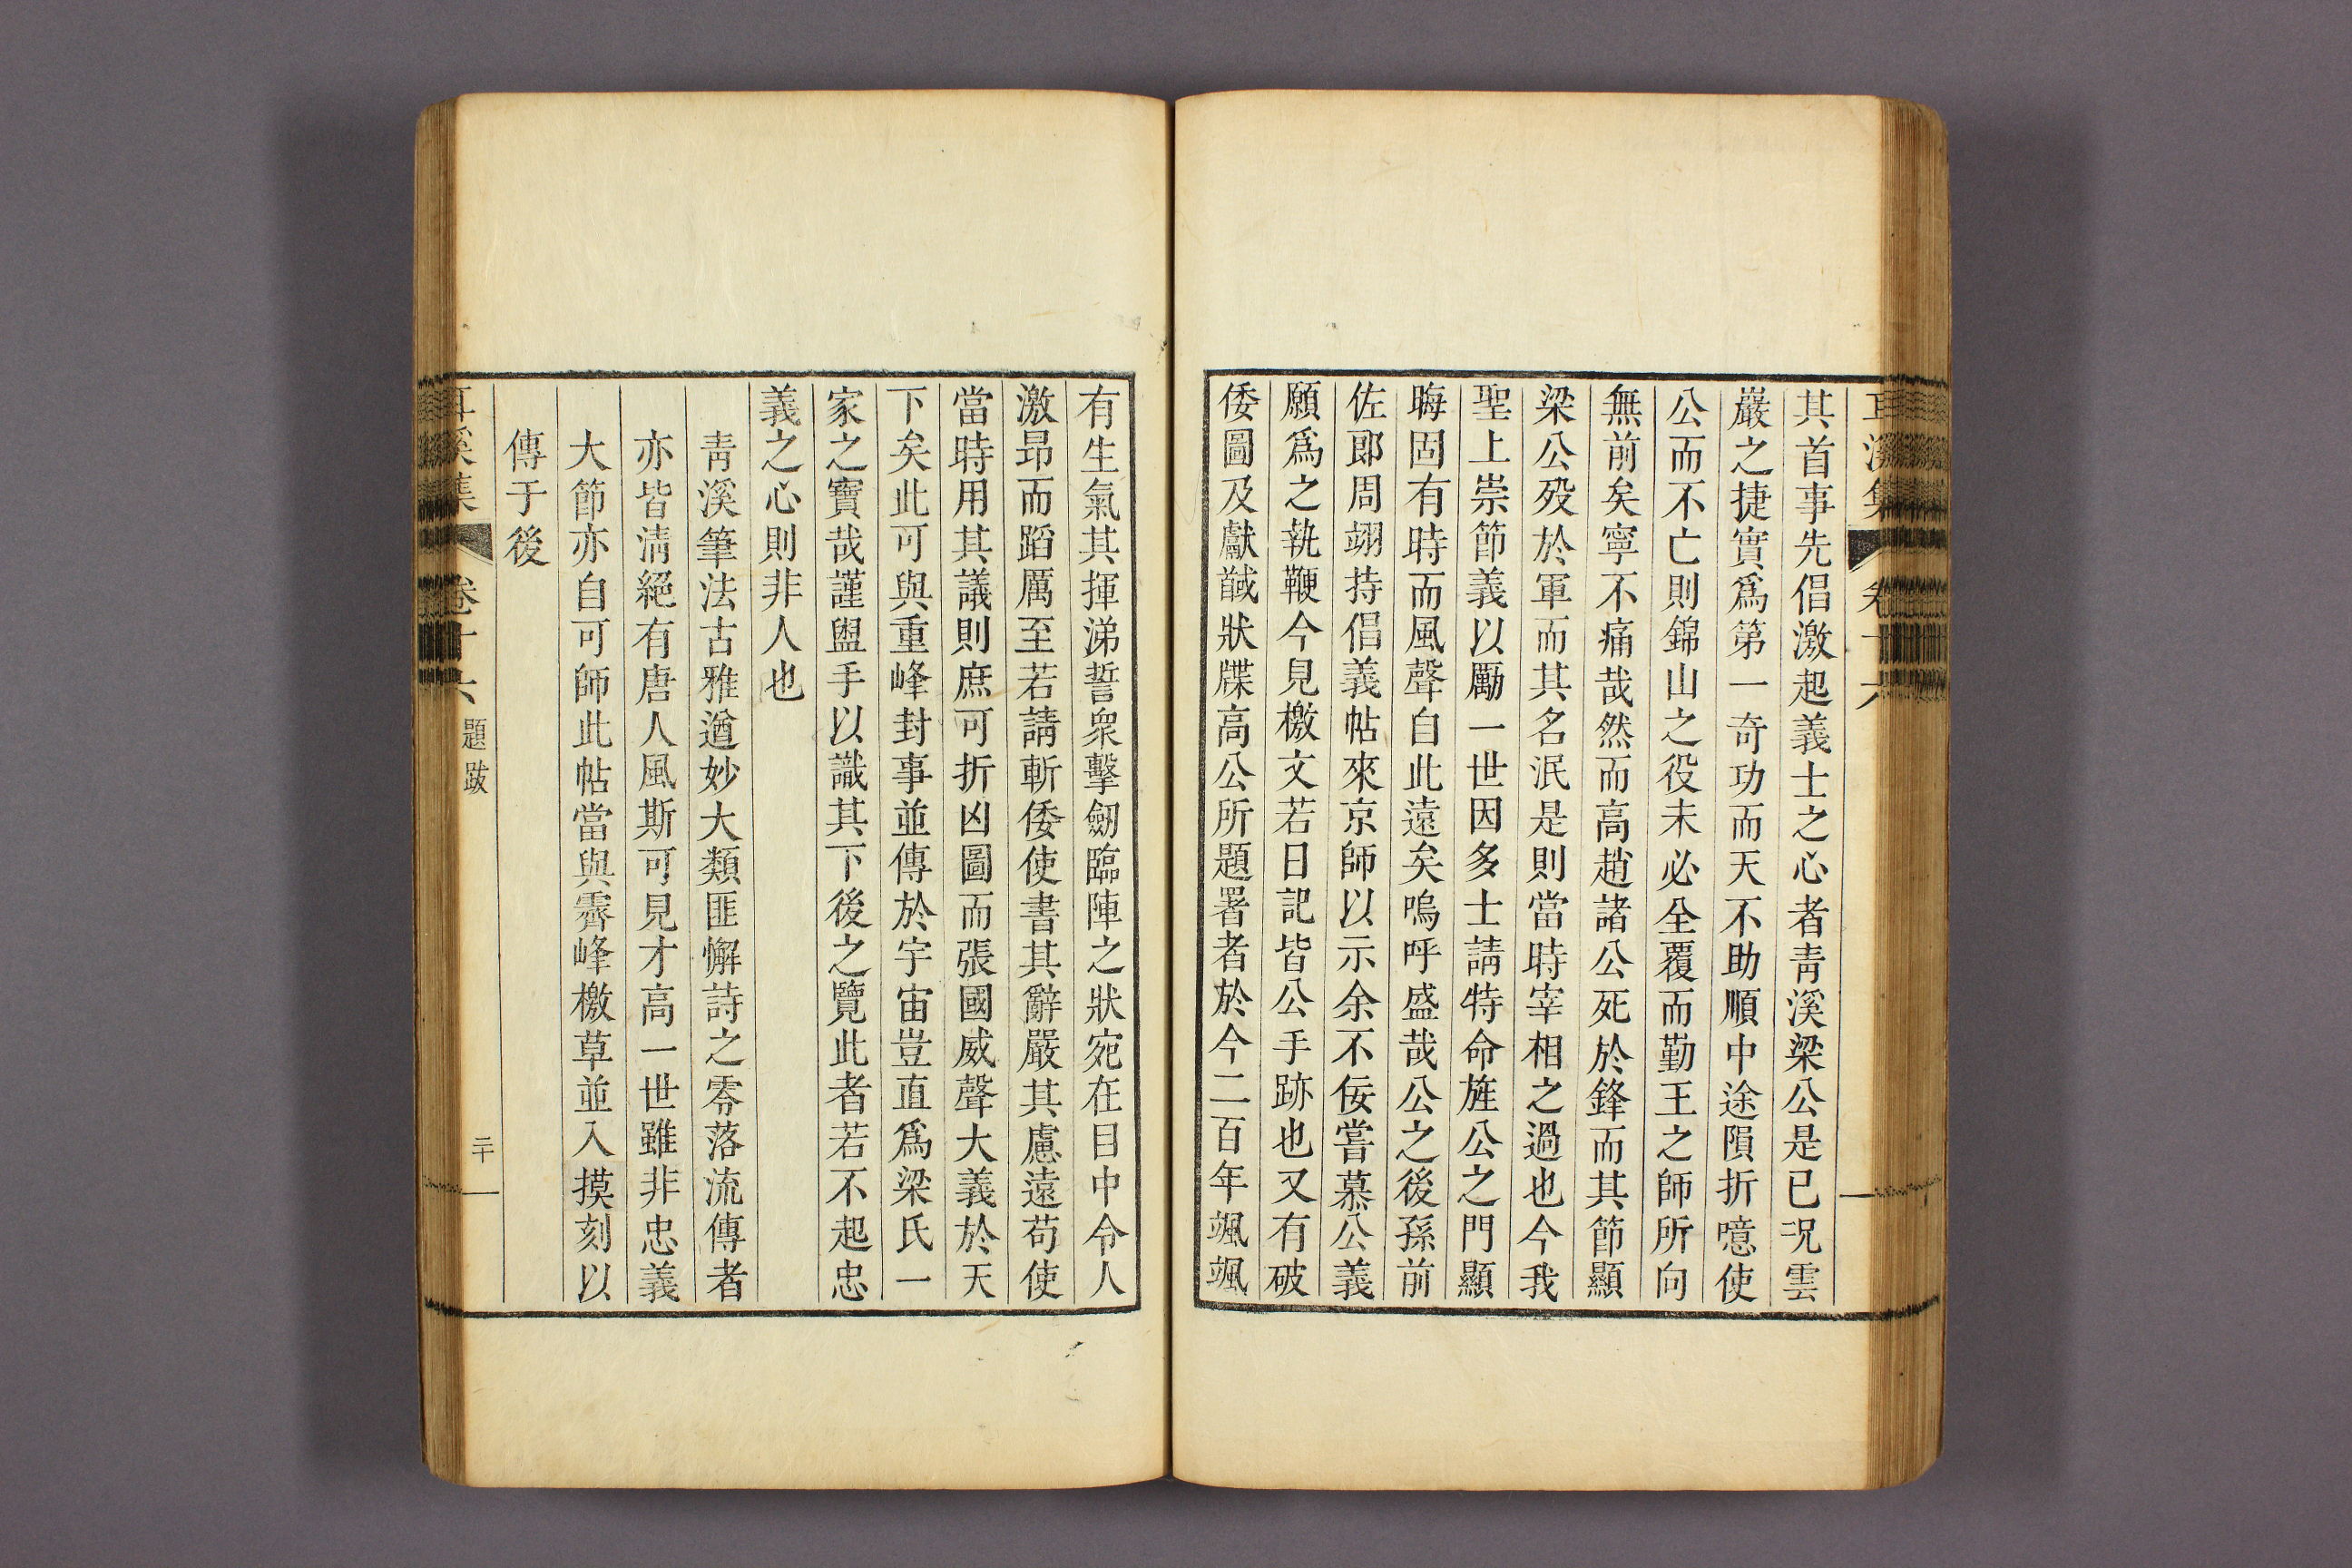 其首事先倡激起義士之心者靑溪梁公是已况雲
巖之捷實爲第一奇功而天不助順中途隕折噫使
公而不亡則錦山之役未必全覆而勤王之師所向
無前矣寧不痛哉然而高趙諸公死於鋒而其節顯
梁公歿於軍而其名泯是則當時宰相之過也今我
聖上崇節義以勵一世因多士請特命旌公之門顯
晦固有時而風聲自此遠矣嗚呼盛哉公之後孫前
佐郞周翊持倡義帖來京師以示余不佞嘗慕公義
願爲之執鞭今見檄文若日記皆公手跡也又有破
倭圖及獻馘狀牒高公所題署者於今二百年颯颯
有生氣其揮涕誓衆擊劒臨陣之狀宛在目中令人
激昂而蹈厲至若請斬倭使書其辭嚴其慮遠苟使
當時用其議則庶可折凶圖而張國威聲大義於天
下矣此可與重峰封事並傳於宇宙豈直爲梁氏一
家之寶哉謹盥手以識其下後之覽此者若不起忠
義之心則非人也
靑溪筆法古雅遒妙大類匪懈詩之零落流傳者
亦皆淸絕有唐人風斯可見才高一世雖非忠義
大節亦自可師此帖當與霽峰檄草並入摸刻以
傳于後
耳溪集
卷十六
題跋
二十